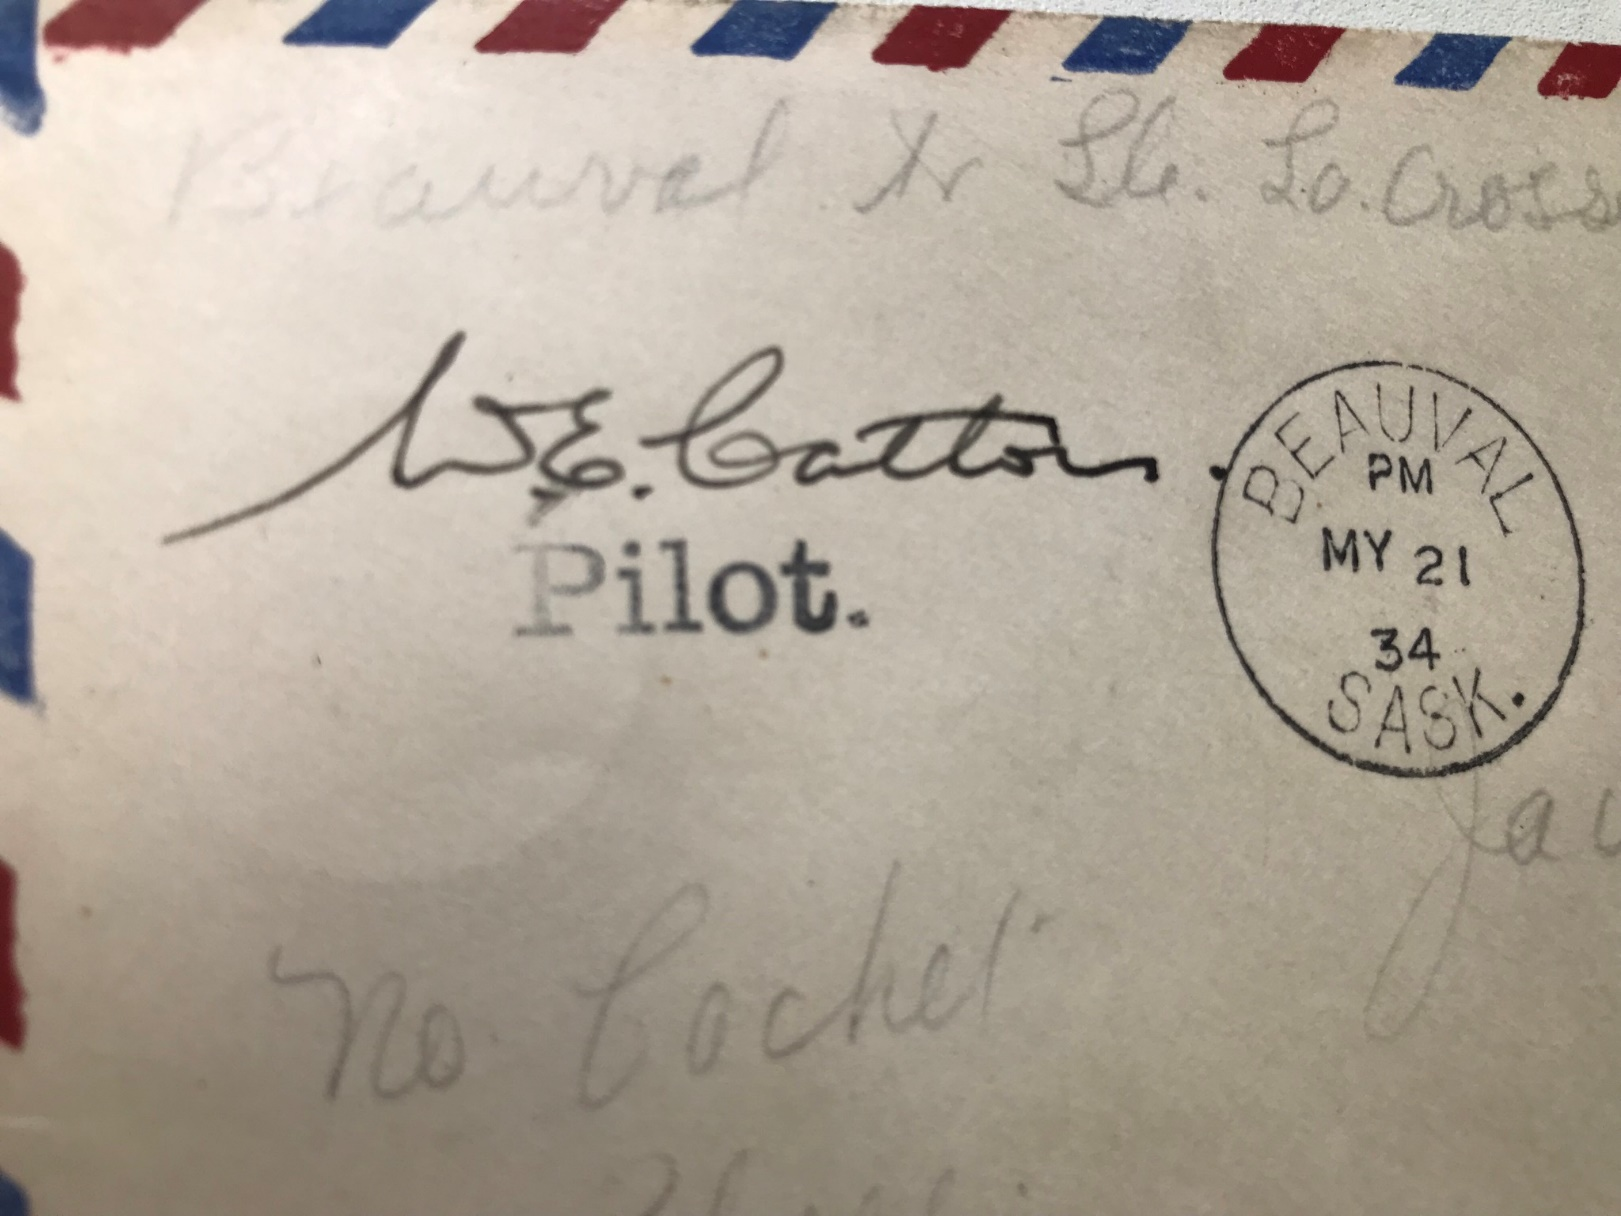 Beauval to Ile. La. Cross
W.E. Catton.
Pilot.
BEAUVAL
PM
MY 21
34
SASK.
No Cachet